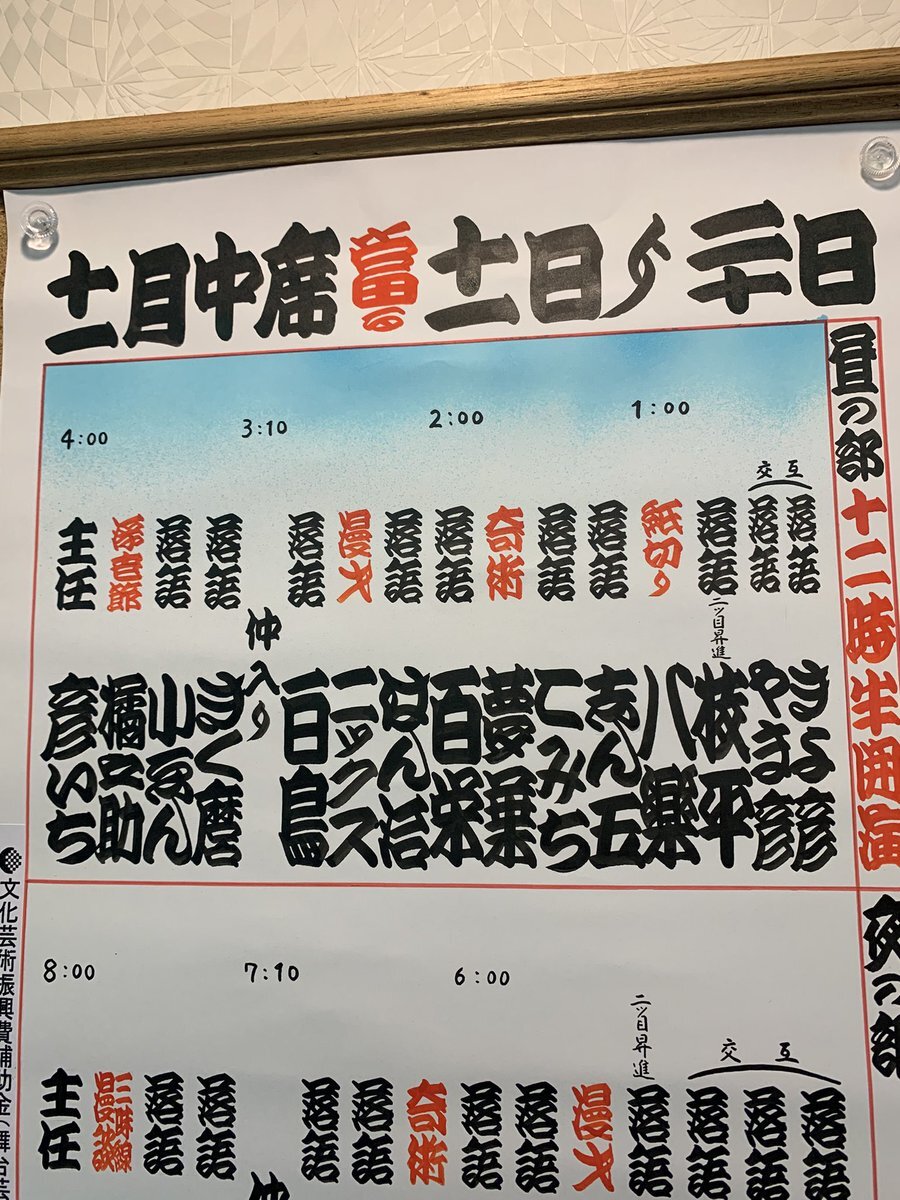 十一月中席 十一日より二十日
昼の部 十二時半開演
1:00
2:00
3:10
4:00
交互
落語 きよ彦
落語 やま彦
落語 二ッ目昇進 枝平
紙切り 八楽
落語 志ん五
落語 こみち
奇術 夢葉
落語 百栄
落語 はん治
漫才 ニックス
落語 白鳥
仲入り
落語 きく麿
落語 小ゑん
浮世節 橘之助
主任 彦いち
夜の部
6:00
7:10
8:00
交互
落語
落語
落語
二ッ目昇進
落語
漫才
落語
落語
奇術
落語
落語
仲
落語
落語
三味線漫談
主任
文化芸術振興費補助金(舞台芸